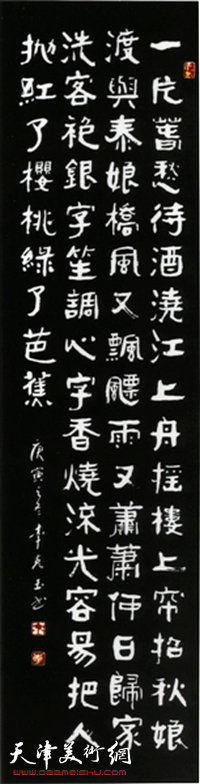 一片萅愁待酒澆江上舟搖樓上帘招秋娘
渡與泰娘橋風又飄飄雨又蕭蕭何日歸家
洗客袍銀字笙調心字香燒流光容易把人
拋紅了櫻桃綠了芭蕉
庚寅
天津美術網